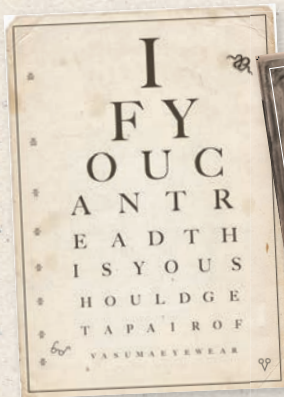 I
F Y
O U C
A N T R
E A D T H
I S Y O U S
H O U L D G E
T A P A I R O F
V A S U M A E Y E W E A R